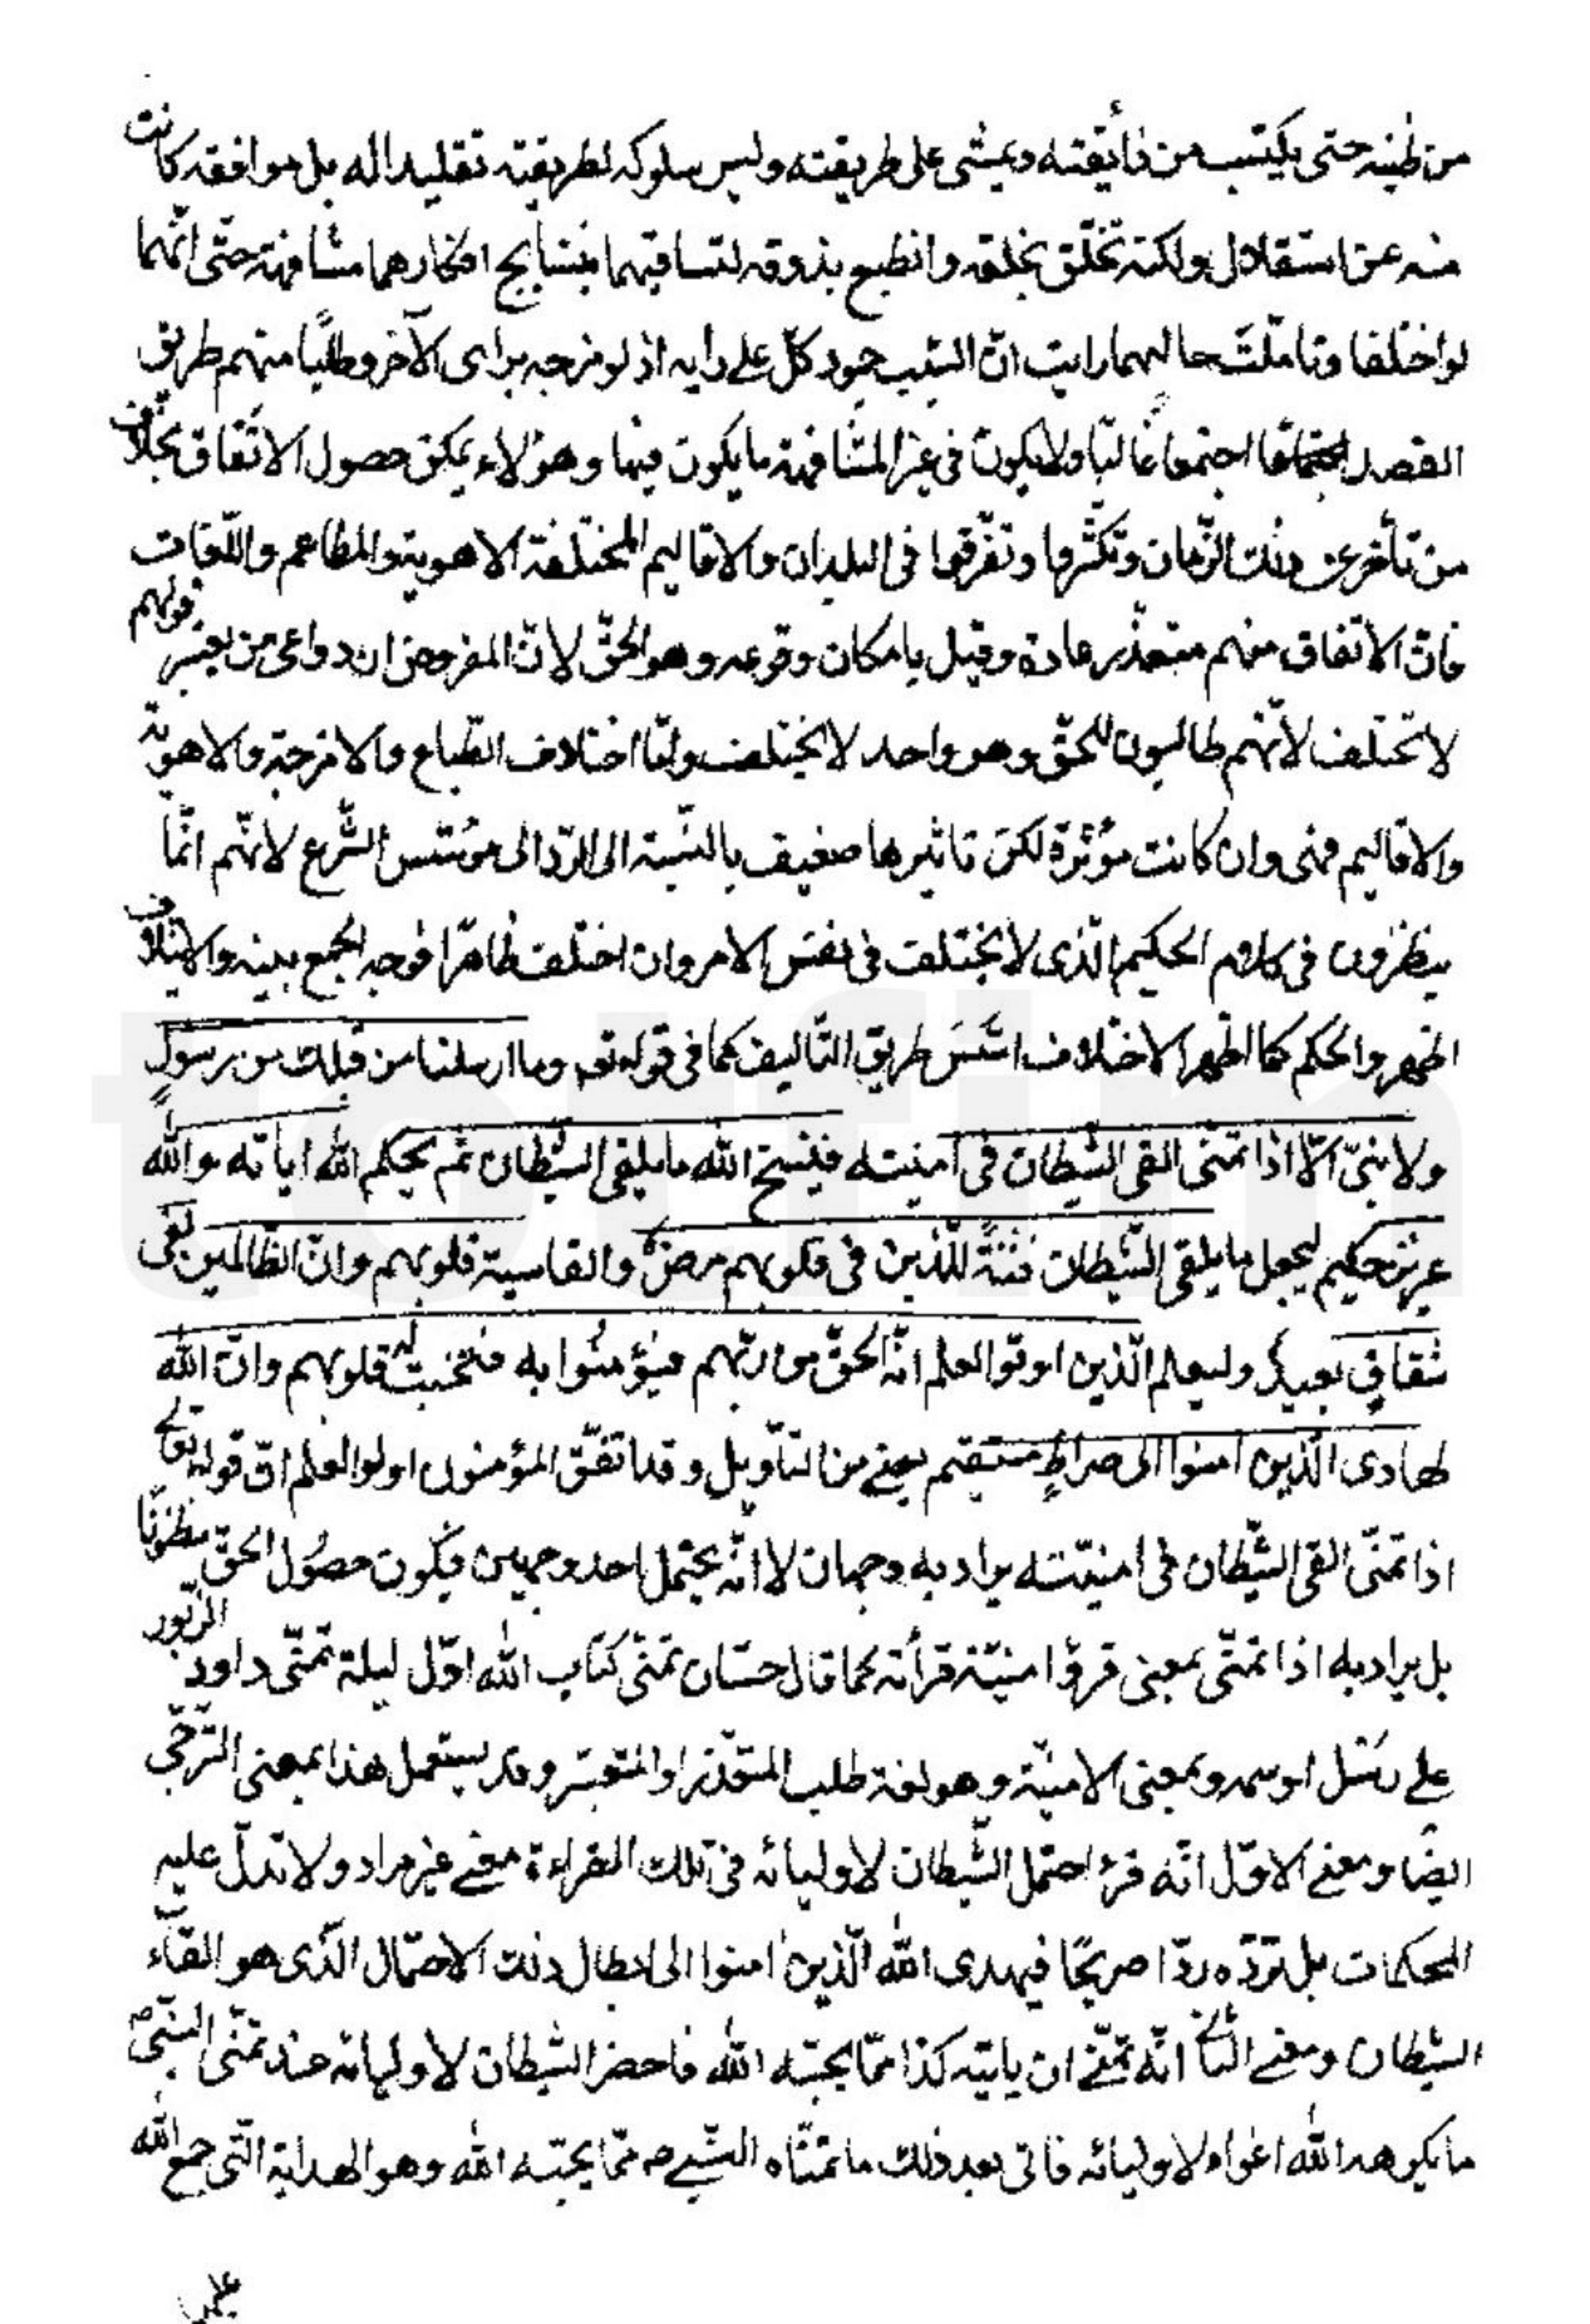 من طينه حتى يكتسب من ذائقته ويمشى على طريقته وليس سلوكه لطريقته تقليدا له بل موافقه كانت
منه عن استقلال ولكنه تخلّق بخلقه وانطبع بذوقه لتساقيهما بنتايج افكارهما مشافهة حتّى انّهما
لو اختلفا وتاملّت حاليهما رايت انّ السّبب جمود كلّ على رايه اذ لو مزجه براى الآخر وطلبا منهم طريق
القصد اجتمعا غالبًا ولا يكون فى غير المشافهة ما يكون فيها وهؤلاء يمكن حصول الاتّفاق بخلاف
من تأخّر عن ذلك الزّمان وتكثّروا وتفرّقوا فى البلدان والاقاليم المختلفة الاهوية والمطاعم واللّغات
فانّ الاتفاق منهم متعذّر عادة وقيل بامكان وقوعه وهو الحقّ لانّ المفروض ان دواعى من يعتبر قولهم
لا تختلف لأنّهم طالبون للحقّ وهو واحد لا يختلف وامّا اختلاف الطّباع والامزجة والاهوية
والاقاليم فهى وان كانت مؤثّرة لكنّ تاثيرها ضعيف بالنّسبة الى الردّ الى مؤسّس الشّرع لانّهم انّما
ينظرون فى كلام الحكيم الّذى لا يختلف فى نفس الامر وان اختلف ظاهرًا فوجه الجمع بينه والايتلاف
اظهر والحكم كما اظهر الاختلاف اسّس طريق التّاليف كما فى قوله تعم وما ارسلنا من قبلك من رسولٍ
ولا نبىّ الّا اذا تمنّى القى الشّيطان فى امنيته فينسخ الله ما يلقى الشّيطان ثم يحكم الله اياته والله
عزيز حكيم ليجعل ما يلقى الشّيطان فتنةً للّذين فى قلوبهم مرضٌ والقاسية قلوبهم وانّ الظّالمين لفى
شقاقٍ بعيدٍ وليعلم الّذين اوتوا العلم انّه الحقّ من ربّهم فيؤمنوا به فتخبت له قلوبهم وانّ الله
لهادى الّذين امنوا الى صراطٍ مستقيم يعنى من التأويل وقد اتفّق المؤمنون اولوا العلم انّ قوله تعالى
اذا تمنّى القى الشّيطان فى امنيّته يراد به وجهان لا انّه يحتمل احد وجهين فيكون حصول الحقّ مظنونًا
بل يراد به اذا تمنّى بمعنى قرؤ امنيّته قرأته كما قال حسّان تمنّى كتاب الله اوّل ليلة تمنّى داود الزّبور
على رسل وبمعنى الامنيّة وهو لغة طلب المتعذّر او المتعسّر وقد يستعمل هذا بمعنى التّرجّى
ايضًا ومعنى الاوّل انّه قرء احتمل الشّيطان لاوليائه فى تلك القراءة معنى غير مراد ولا تدلّ عليه
المحكمات بل تردّه ردّا صريحًا فيهدى الله الّذين امنوا الى ابطال ذلك الاحتمال الّذى هو القاء
الشّيطان ومعنى الثانى انّه تمنّى ان ياتيه كذا ممّا يحبّه الله فاحضر الشّيطان لاوليائه عند تمنّى النبىّ ص
ما يكرهه الله اغواء لاوليائه فاتى بعد ذلك ما تمنّاه النّبى ص ممّا يحبّه الله وهو الهداية الّتى جمع الله